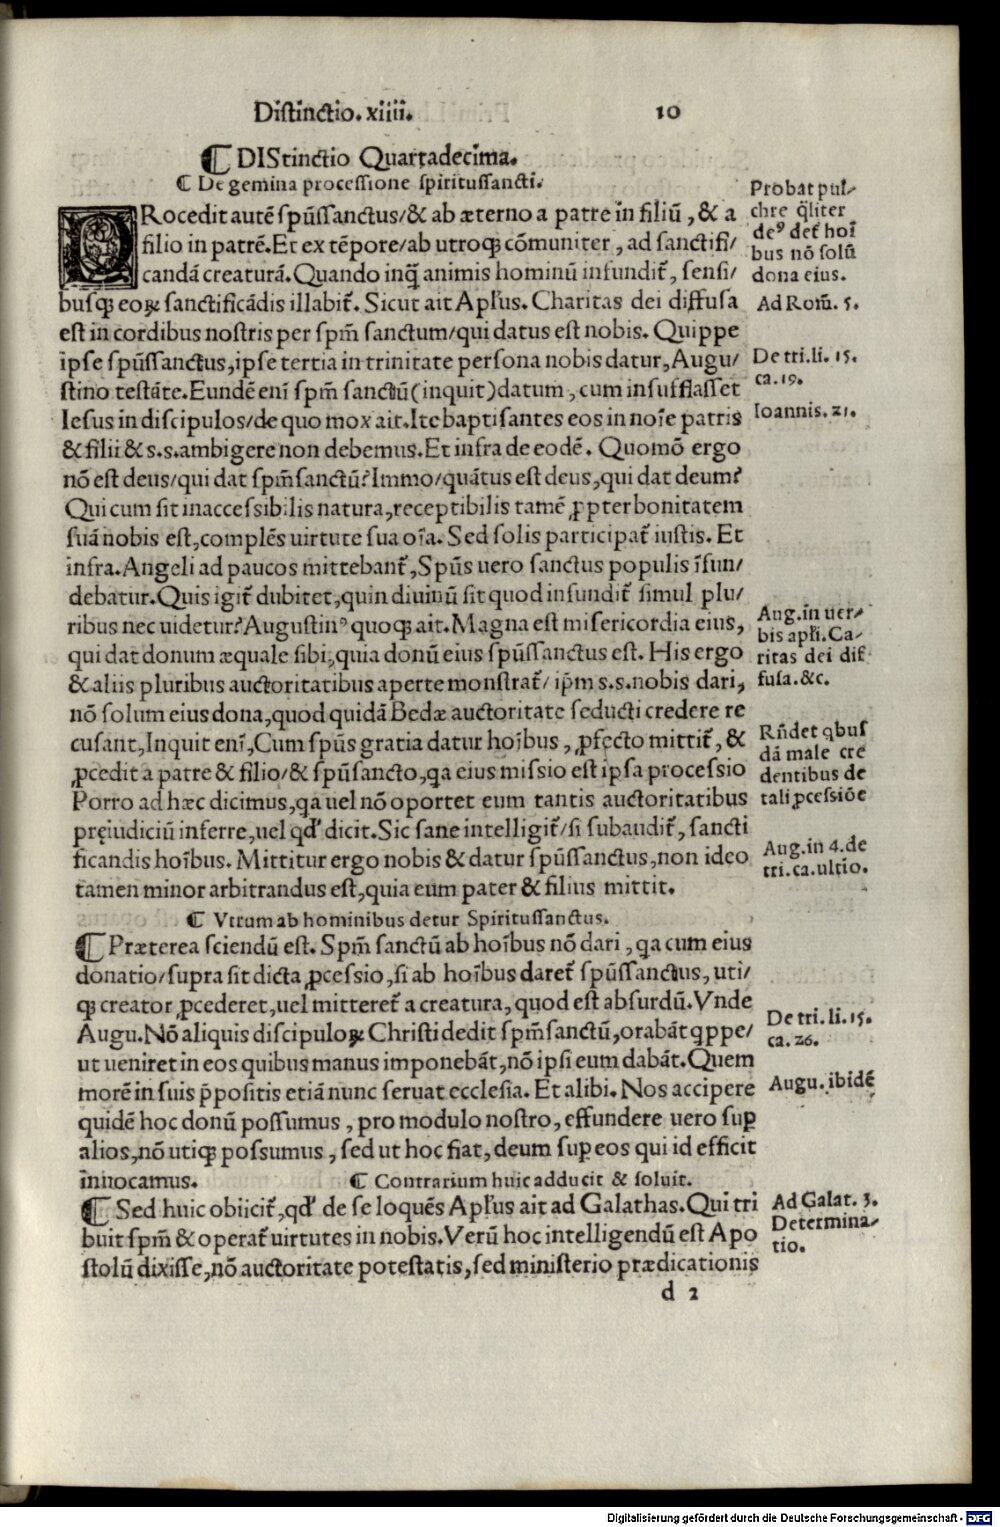 Distinctio.xiiii. 10
¶ DIStinctio Quartadecima.
¶ De gemina processione spiritussancti.
PRocedit autē spūssanctus/& ab æterno a patre in filiū, & a
filio in patrē.Et ex tēpore/ab utroqꝫ cōmuniter, ad sanctifi/
candā creaturā.Quando inq̄ animis hominū infundit̄, sensi/
busqꝫ eoꝝ sanctificādis illabit̄. Sicut ait Apl'us. Charitas dei diffusa
est in cordibus nostris per spm̄ sanctum/qui datus est nobis. Quippe
ipse spūssanctus,ipse tertia in trinitate persona nobis datur,Augu/
stino testāte.Eundē enī spm̄ sanctū(inquit)datum, cum insufflasset
Iesus in discipulos/de quo mox ait.Ite baptisantes eos in noīe patris
& filii & s.s.ambigere non debemus.Et infra de eodē. Quomō ergo
nō est deus/qui dat spm̄sanctū?Immo/quātus est deus,qui dat deum?
Qui cum sit inaccessibilis natura,receptibilis tamē ꝓpter bonitatem
suā nobis est,complēs uirtute sua oīa. Sed solis participat̄ iustis. Et
infra.Angeli ad paucos mittebant̄,Spūs uero sanctus populis īfun/
debatur.Quis igit̄ dubitet,quin diuinū sit quod infundit̄ simul plu/
ribus nec uidetur?Augustinꝰ quoqꝫ ait.Magna est misericordia eius,
qui dat donum æquale sibi,quia donū eius spūssanctus est. His ergo
& aliis pluribus auctoritatibus aperte monstrat̄/ ip̄m s.s.nobis dari,
nō solum eius dona,quod quidā Bedæ auctoritate seducti credere re
cusant,Inquit enī,Cum spūs gratia datur hoībus, ꝓfecto mittit̄, &
ꝓcedit a patre & filio/& spūsancto,qa eius missio est ipsa processio
Porro ad hæc dicimus,qa uel nō oportet eum tantis auctoritatibus
pręiudiciū inferre,uel qd' dicit.Sic sane intelligit̄/si subaudit̄, sancti
ficandis hoībus. Mittitur ergo nobis & datur spūssanctus,non ideo
tamen minor arbitrandus est,quia eum pater & filius mittit.
¶ Vtrum ab hominibus detur Spiritussanctus.
¶ Præterea sciendū est. Spm̄ sanctū ab hoībus nō dari, qa cum eius
donatio/supra sit dicta ꝓcessio,si ab hoībus daret̄ spūssanctus, uti/
qꝫ creator ꝓcederet,uel mitteret̄ a creatura, quod est absurdū.Vnde
Augu.Nō aliquis discipuloꝝ Christi dedit spm̄sanctū,orabāt qppe/
ut ueniret in eos quibus manus imponebāt,nō ipsi eum dabāt.Quem
morē in suis p̄positis etiā nunc seruat ecclesia. Et alibi. Nos accipere
quidē hoc donū possumus, pro modulo nostro, effundere uero suꝑ
alios,nō utiqꝫ possumus, sed ut hoc fiat, deum suꝑ eos qui id efficit
inuocamus. ¶ Contrarium huic adducit & soluit.
¶ Sed huic obiicit̄,qd' de se loquēs Apl'us ait ad Galathas.Qui tri
buit spm̄ & operat̄ uirtutes in nobis. Verū hoc intelligendū est Apo
stolū dixisse,nō auctoritate potestatis, sed ministerio prædicationis
d 2
Probat pul/
chre q̄liter
deꝰ det̄ hoī
bus nō solū
dona eius.
Ad Rom̄. 5.
De tri.li. 15.
ca.19.
Ioannis.21.
Aug.in uer/
bis apl'i.Ca/
ritas dei dif
fusa.&c.
Rn̄det qbus
dā male cre
dentibus de
tali ꝓcessiōe
Aug.in 4.de
tri.ca.ultio.
De tri.li.15.
ca.26.
Augu.ibidē
Ad Galat. 3.
Determina/
tio.
Digitalisierung gefördert durch die Deutsche Forschungsgemeinschaft - DFG